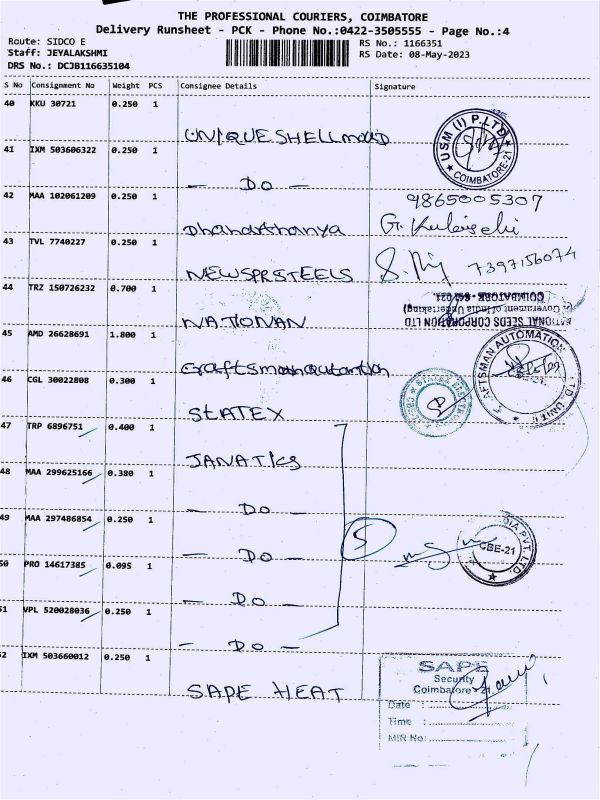 THE PROFESSIONAL COURIERS, COIMBATORE
Delivery Runsheet - PCK - Phone No.:0422-3505555 - Page No.:4
Route: SIDCO E
Staff: JEYALAKSHMI
DRS No.: DCJB116635104
RS No.: 1166351
RS Date: 08-May-2023
S No Consignment No Weight PCS Consignee Details Signature
40 KKU 30721 0.250 1
UNIQUE SHELL mould
USM (I) P.LTD
COIMBATORE-21
41 IXM 503606322 0.250 1
- DO -
42 MAA 102061209 0.250 1
9865005307
Dhanarthanya
43 TVL 7740227 0.250 1
NEWSPRSTEELS
7397156074
44 TRZ 150726232 0.700 1
NATIONAN
NATIONAL SEEDS CORPORATION LTD
(Government of India Undertaking)
COIMBATORE - 641021.
45 AMD 26628691 1.800 1
Craftsmanautomation
46 CGL 30022808 0.300 1
STATEX
47 TRP 6896751 0.400 1
JANATICS
48 MAA 299625166 0.380 1
- DO -
49 MAA 297486854 0.250 1
- DO -
5
CBE-21
DIA PVT. LTD.
50 PRO 14617385 0.095 1
- DO -
51 VPL 520028036 0.250 1
- DO -
52 IXM 503660012 0.250 1
SAPE HEAT
SAPE
Security
Coimbatore - 21.
Date :
Time :
MIR No: